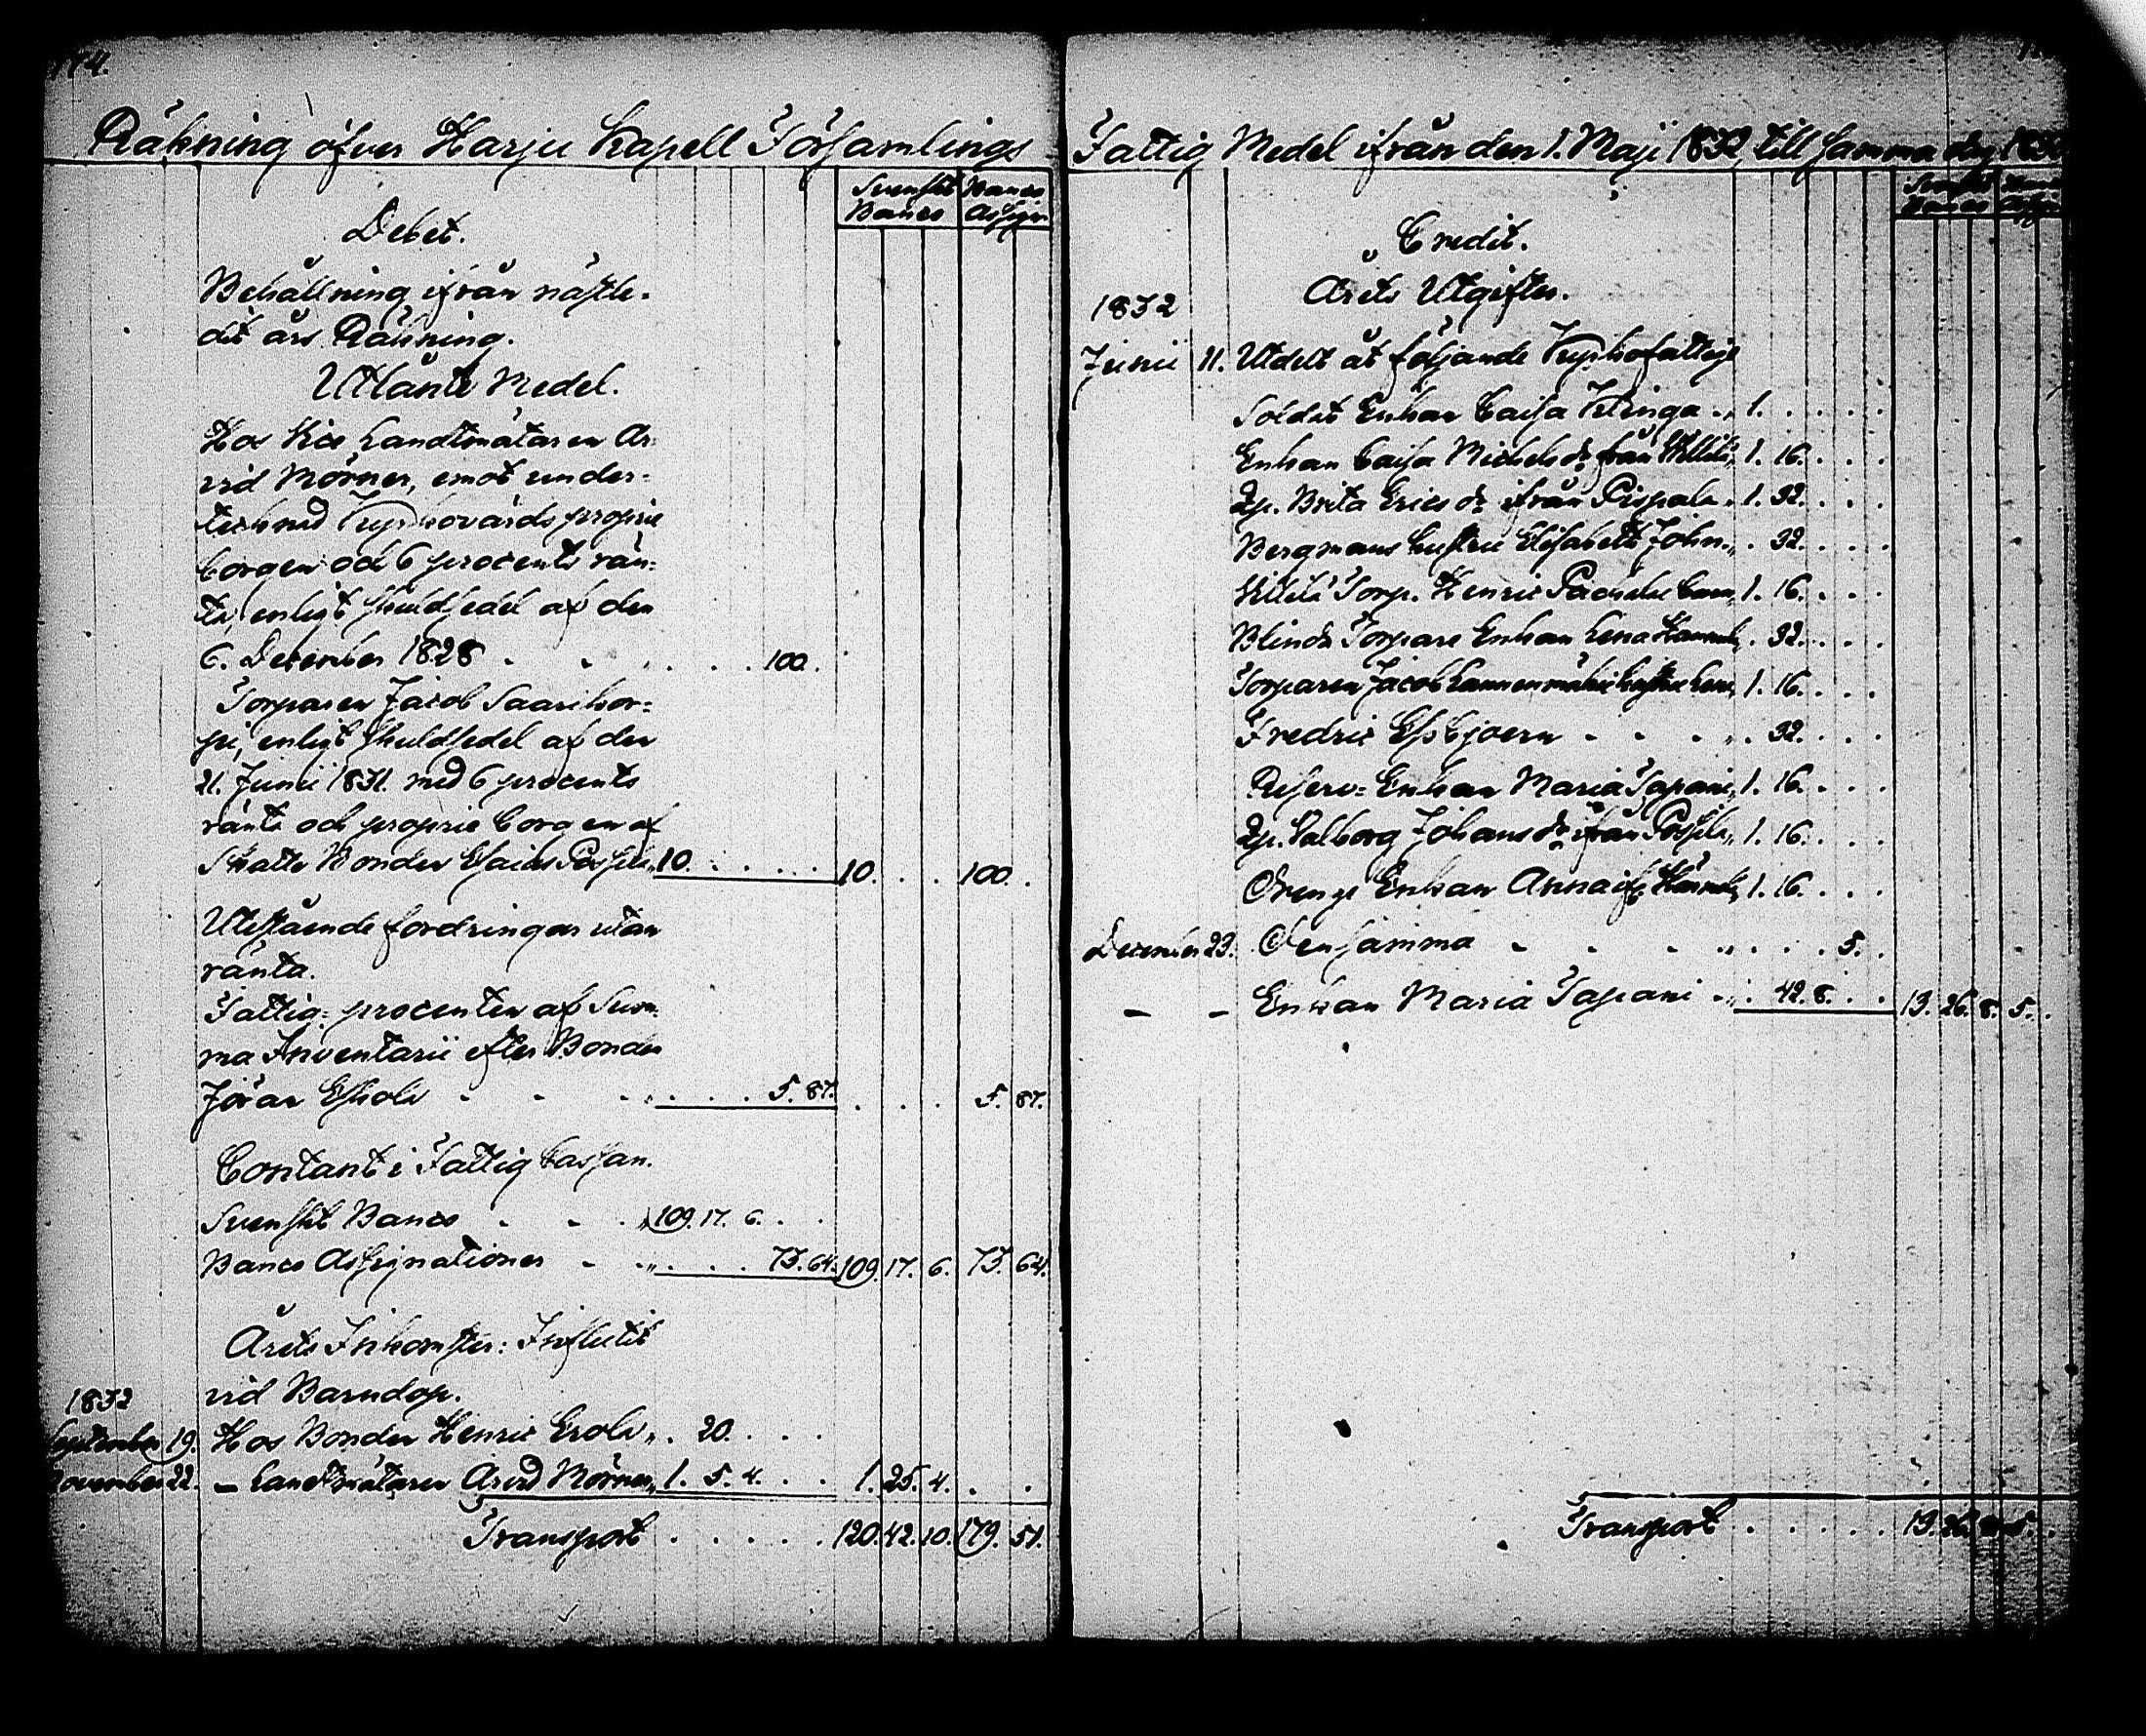 174.
Räkning öfver Harju Kapell Församlings
Svenskt Banco
Banco Assign.
Debet.
Behållning ifrån nästle-
dit års Räkning.
Utlånte Medel.
Hos Vice Landtmätaren Ar-
vid Mörner, emot under-
tecknad Kyrkovärds proprie
borgen och 6 procents rän-
ta, enligt skuldsedel af den
6. December 1828 . . . . . 100.
Torparen Jacob Saarikor-
pi, enligt skuldsedel af den
21. Junii 1831. med 6 procents
ränta och proprie borgen af
Skatte Bonden Esaias Pospila 10. . . . . . 10. . . 100. .
Utestående fordringar utan
ränta.
Fattig-procenten af Sum-
ma Inventarii efter Bonden
Jöran Eskola . . . . . 5. 87. . . . 5. 87.
Contant i Fattig Cassan.
Svenskt Banco . . . 109. 17. 6. . .
Banco Assignationer . . . . . 73. 64. 109. 17. 6. 73. 64.
Årets Inkomster: Influtit
1832 vid Barndop.
September 19. Hos Bonden Henric Erola . 20. . . .
November 22. — Landtmätaren Arvid Mörner 1. 5. 4. . . 1. 25. 4. . .
Transport . . . . . 120. 42. 10. 179. 51.
Fattig Medel ifrån den 1. Maji 1832, till samma dag
Svenskt Banco
Credit.
Årets Utgifter.
1832
Junii 11. Utdelt åt följande Kyrkofattige
Soldat Enkan Caisa Kringa . 1. . . . . .
Enkan Caisa Michelsdr från 1. 16. . . .
Brita Ericsdr ifrån Pispala 1. 32. . . .
Bergmans hustru Elisabeth Johns . 32. . . .
Torp. Henric 1. 16. . . .
Blinda Torpare Enkan Lena . 32. . . .
Torparen Jacob hustru 1. 16. . . .
Fredric Essbjoern . . . . 32. . . .
Reserv- Enkan Maria Tapani 1. 16. . . .
Valborg Johansdr ifrån Pospila 1. 16. . . .
Drenge Enkan Anna 1. 16. . . .
December 23. Densamma . . . . . . . 5. .
— — Enkan Maria Tapani . . 42. 8. . . 13. 26. 8. 5. .
Transport . . . . . 13. 26. 8. 5. .